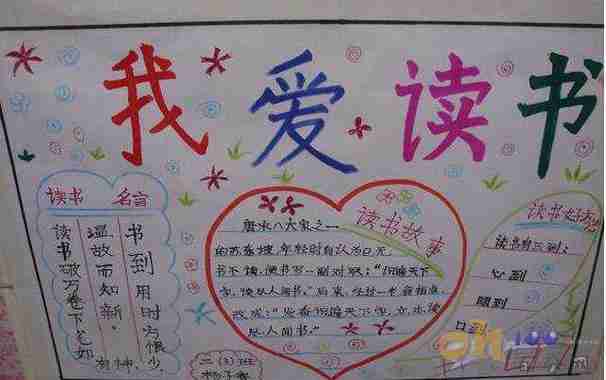 我爱读书
读书 名言
书到用时方恨少
温故而知新
读书破万卷下笔如有神
读书故事
唐宋八大家之一
的苏东坡,年轻时自认为
书不读,便书写一副对联:"识遍天下
字,读尽人间书。"后来,经过
改成:"发奋识遍天下字,立志读
尽人间书。"
二(3)班
读书
读书有三到:
心到
眼到
口到